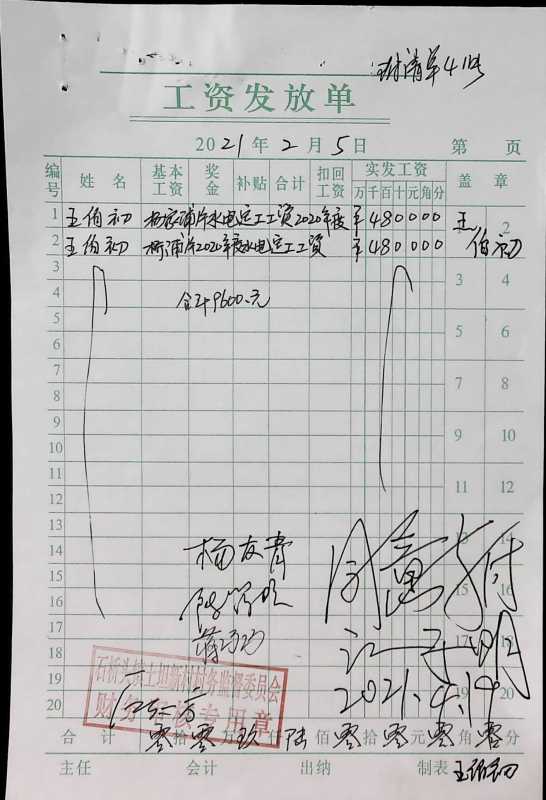 附清单4张
工资发放单
2021年2月5日 第 页
编号 姓名 基本工资 奖金 补贴 合计 扣回工资 实发工资 万千百十元角分 盖章
1 王伯初 杨家浦片水电定工工资2020年度 ¥480000 王 2
2 王伯初 杨浦片2020年度水电定工工资 ¥480000 伯初
3 3 4
4 合计9600.元
5 5 6
6
7 7 8
8
9 9 10
10
11 11 12
12
13 14
14 杨友青 同意支付
15 15 16
16
17
18 江
19 石桥头镇上坦新村村务监督委员会 2021.4.19 19 20
20 财务审核专用章
合计 零拾零万玖仟陆佰零拾零元零角零分
主任 会计 出纳 制表 王伯初